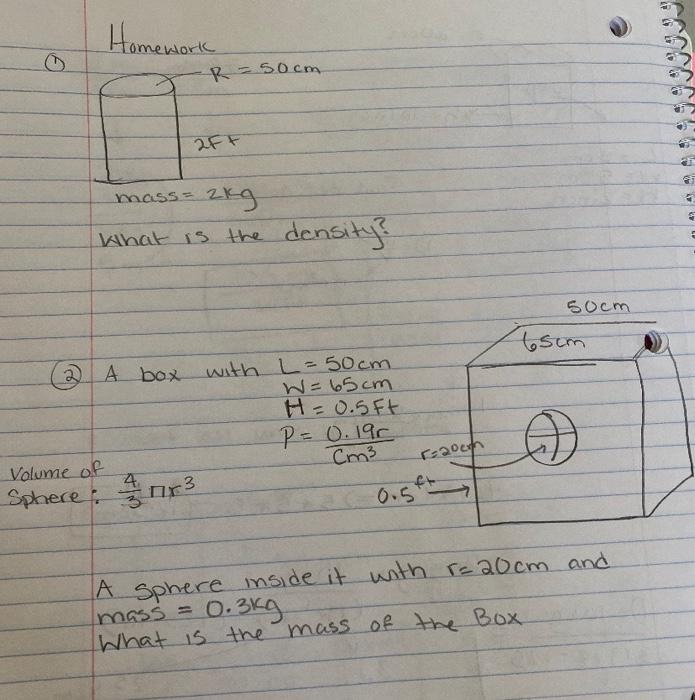 Homework
① R = 50cm
2Ft
mass = 2kg
What is the density?
50cm
65cm
② A box with L = 50cm
W = 65cm
H = 0.5Ft
P = 0.19r
cm³
r=20cm
0.5ft
Volume of
Sphere: 4/3 πr³
A sphere inside it with r=20cm and
mass = 0.3kg
What is the mass of the Box